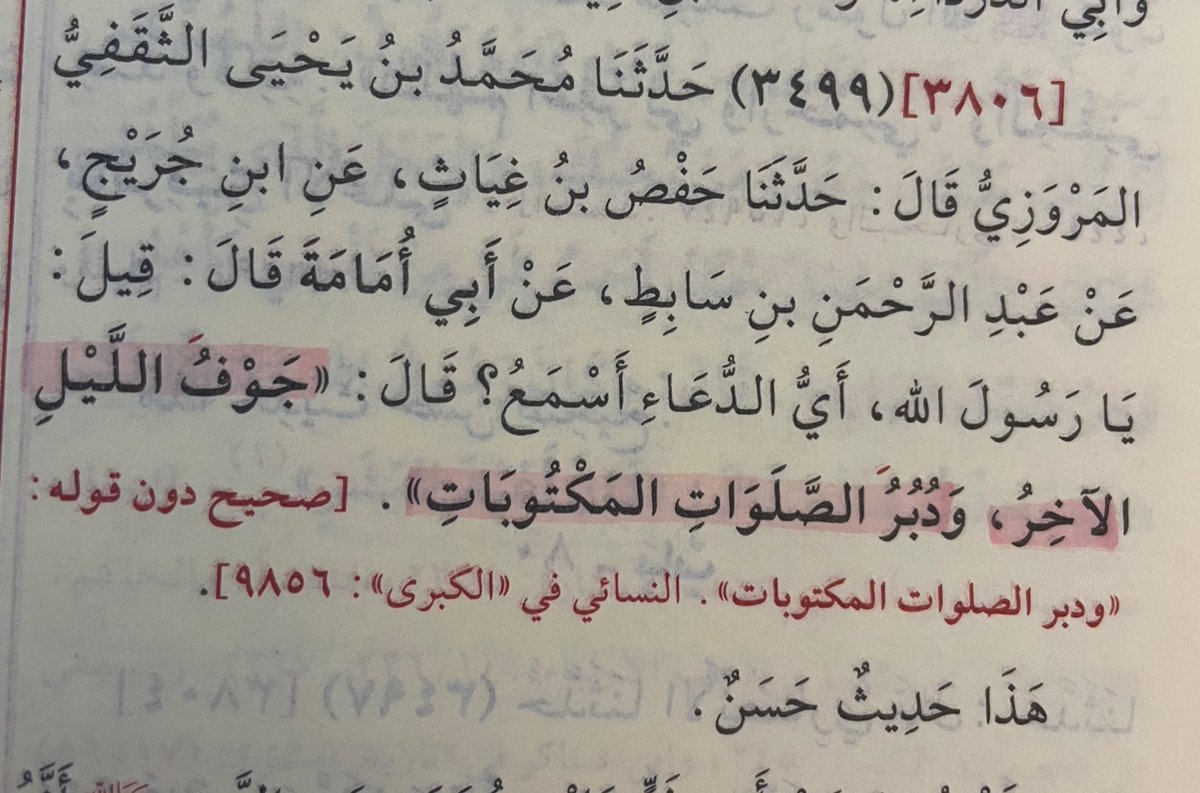 وَأَبِي
[٣٨٠٦](٣٤٩٩) حَدَّثَنَا مُحَمَّدُ بنُ يَحْيَى الثَّقَفِيُّ
المَرْوَزِيُّ قَالَ: حَدَّثَنَا حَفْصُ بنُ غِيَاثٍ، عَنِ ابنِ جُرَيْجٍ،
عَنْ عَبْدِ الرَّحْمَنِ بنِ سَابِطٍ، عَنْ أَبِي أُمَامَةَ قَالَ: قِيلَ:
يَا رَسُولَ الله، أَيُّ الدُّعَاءِ أَسْمَعُ؟ قَالَ: «جَوْفُ اللَّيْلِ
الآخِرُ، وَدُبُرُ الصَّلَوَاتِ المَكْتُوبَاتِ». [صحيح دون قوله:
«ودبر الصلوات المكتوبات». النسائي في «الكبرى»: ٩٨٥٦].
هَذَا حَدِيثٌ حَسَنٌ.